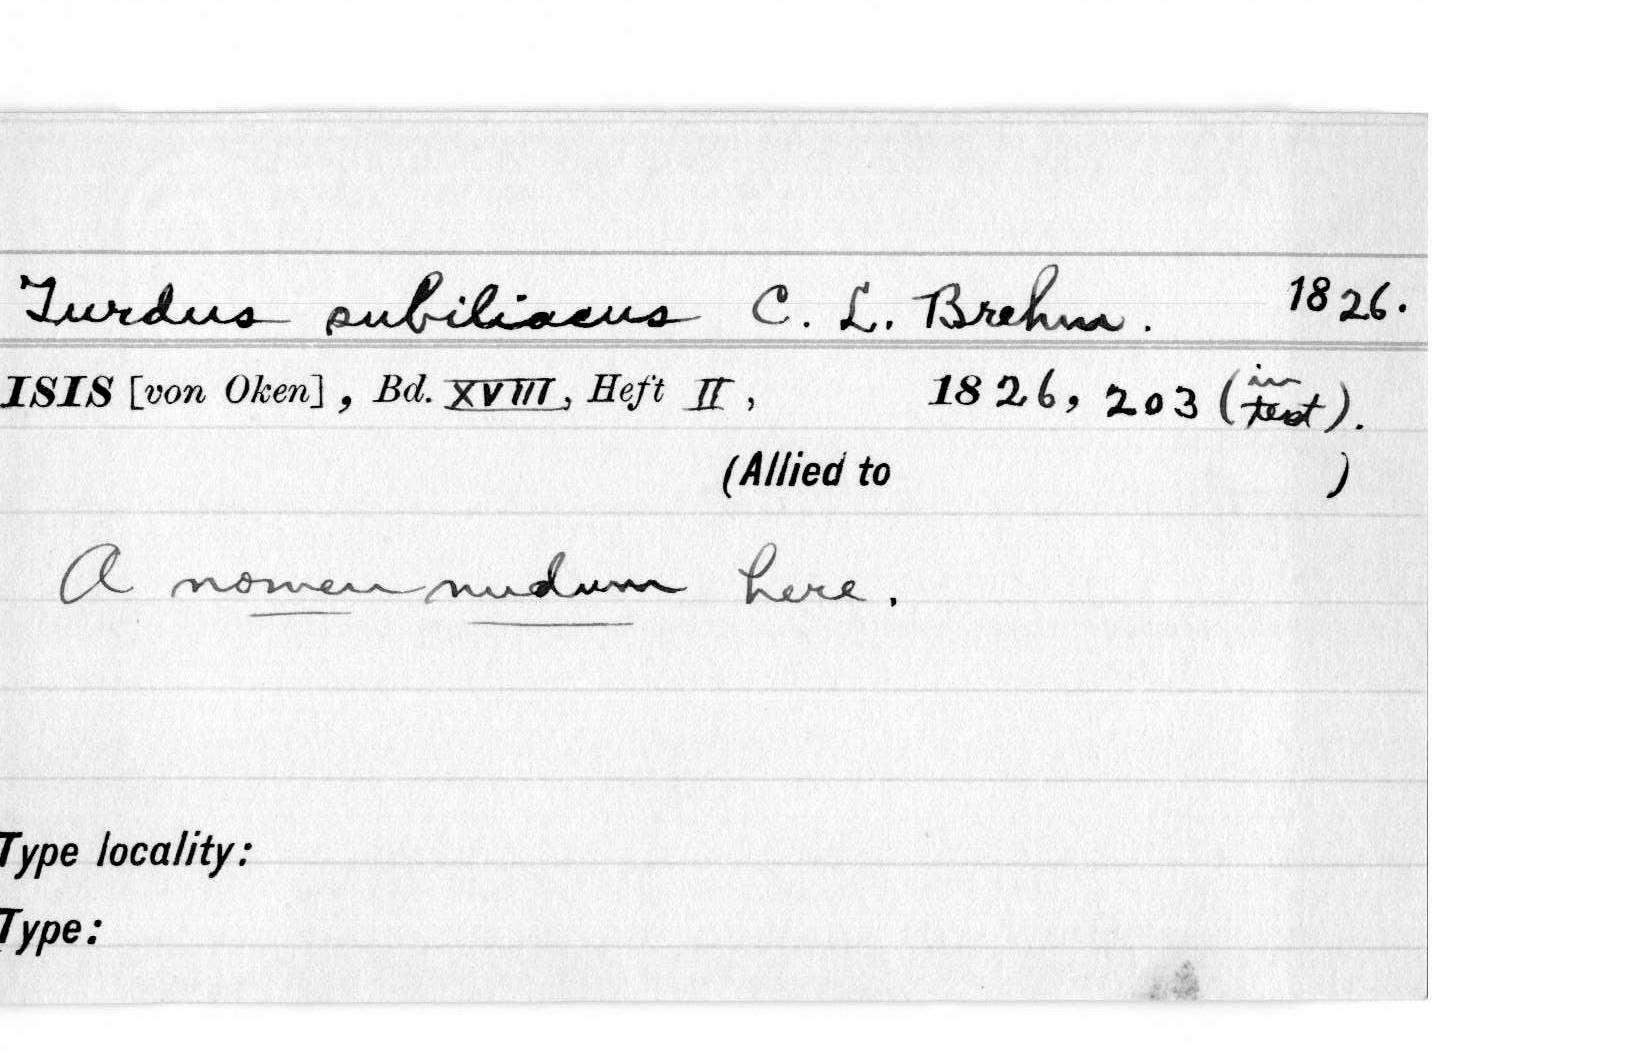 Turdus subiliacus C. L. Brehm. 1826.
ISIS [von Oken], Bd. XVIII, Heft II, 1826, 203 (in text).
(Allied to )
A nomen nudum here.
Type locality:
Type: